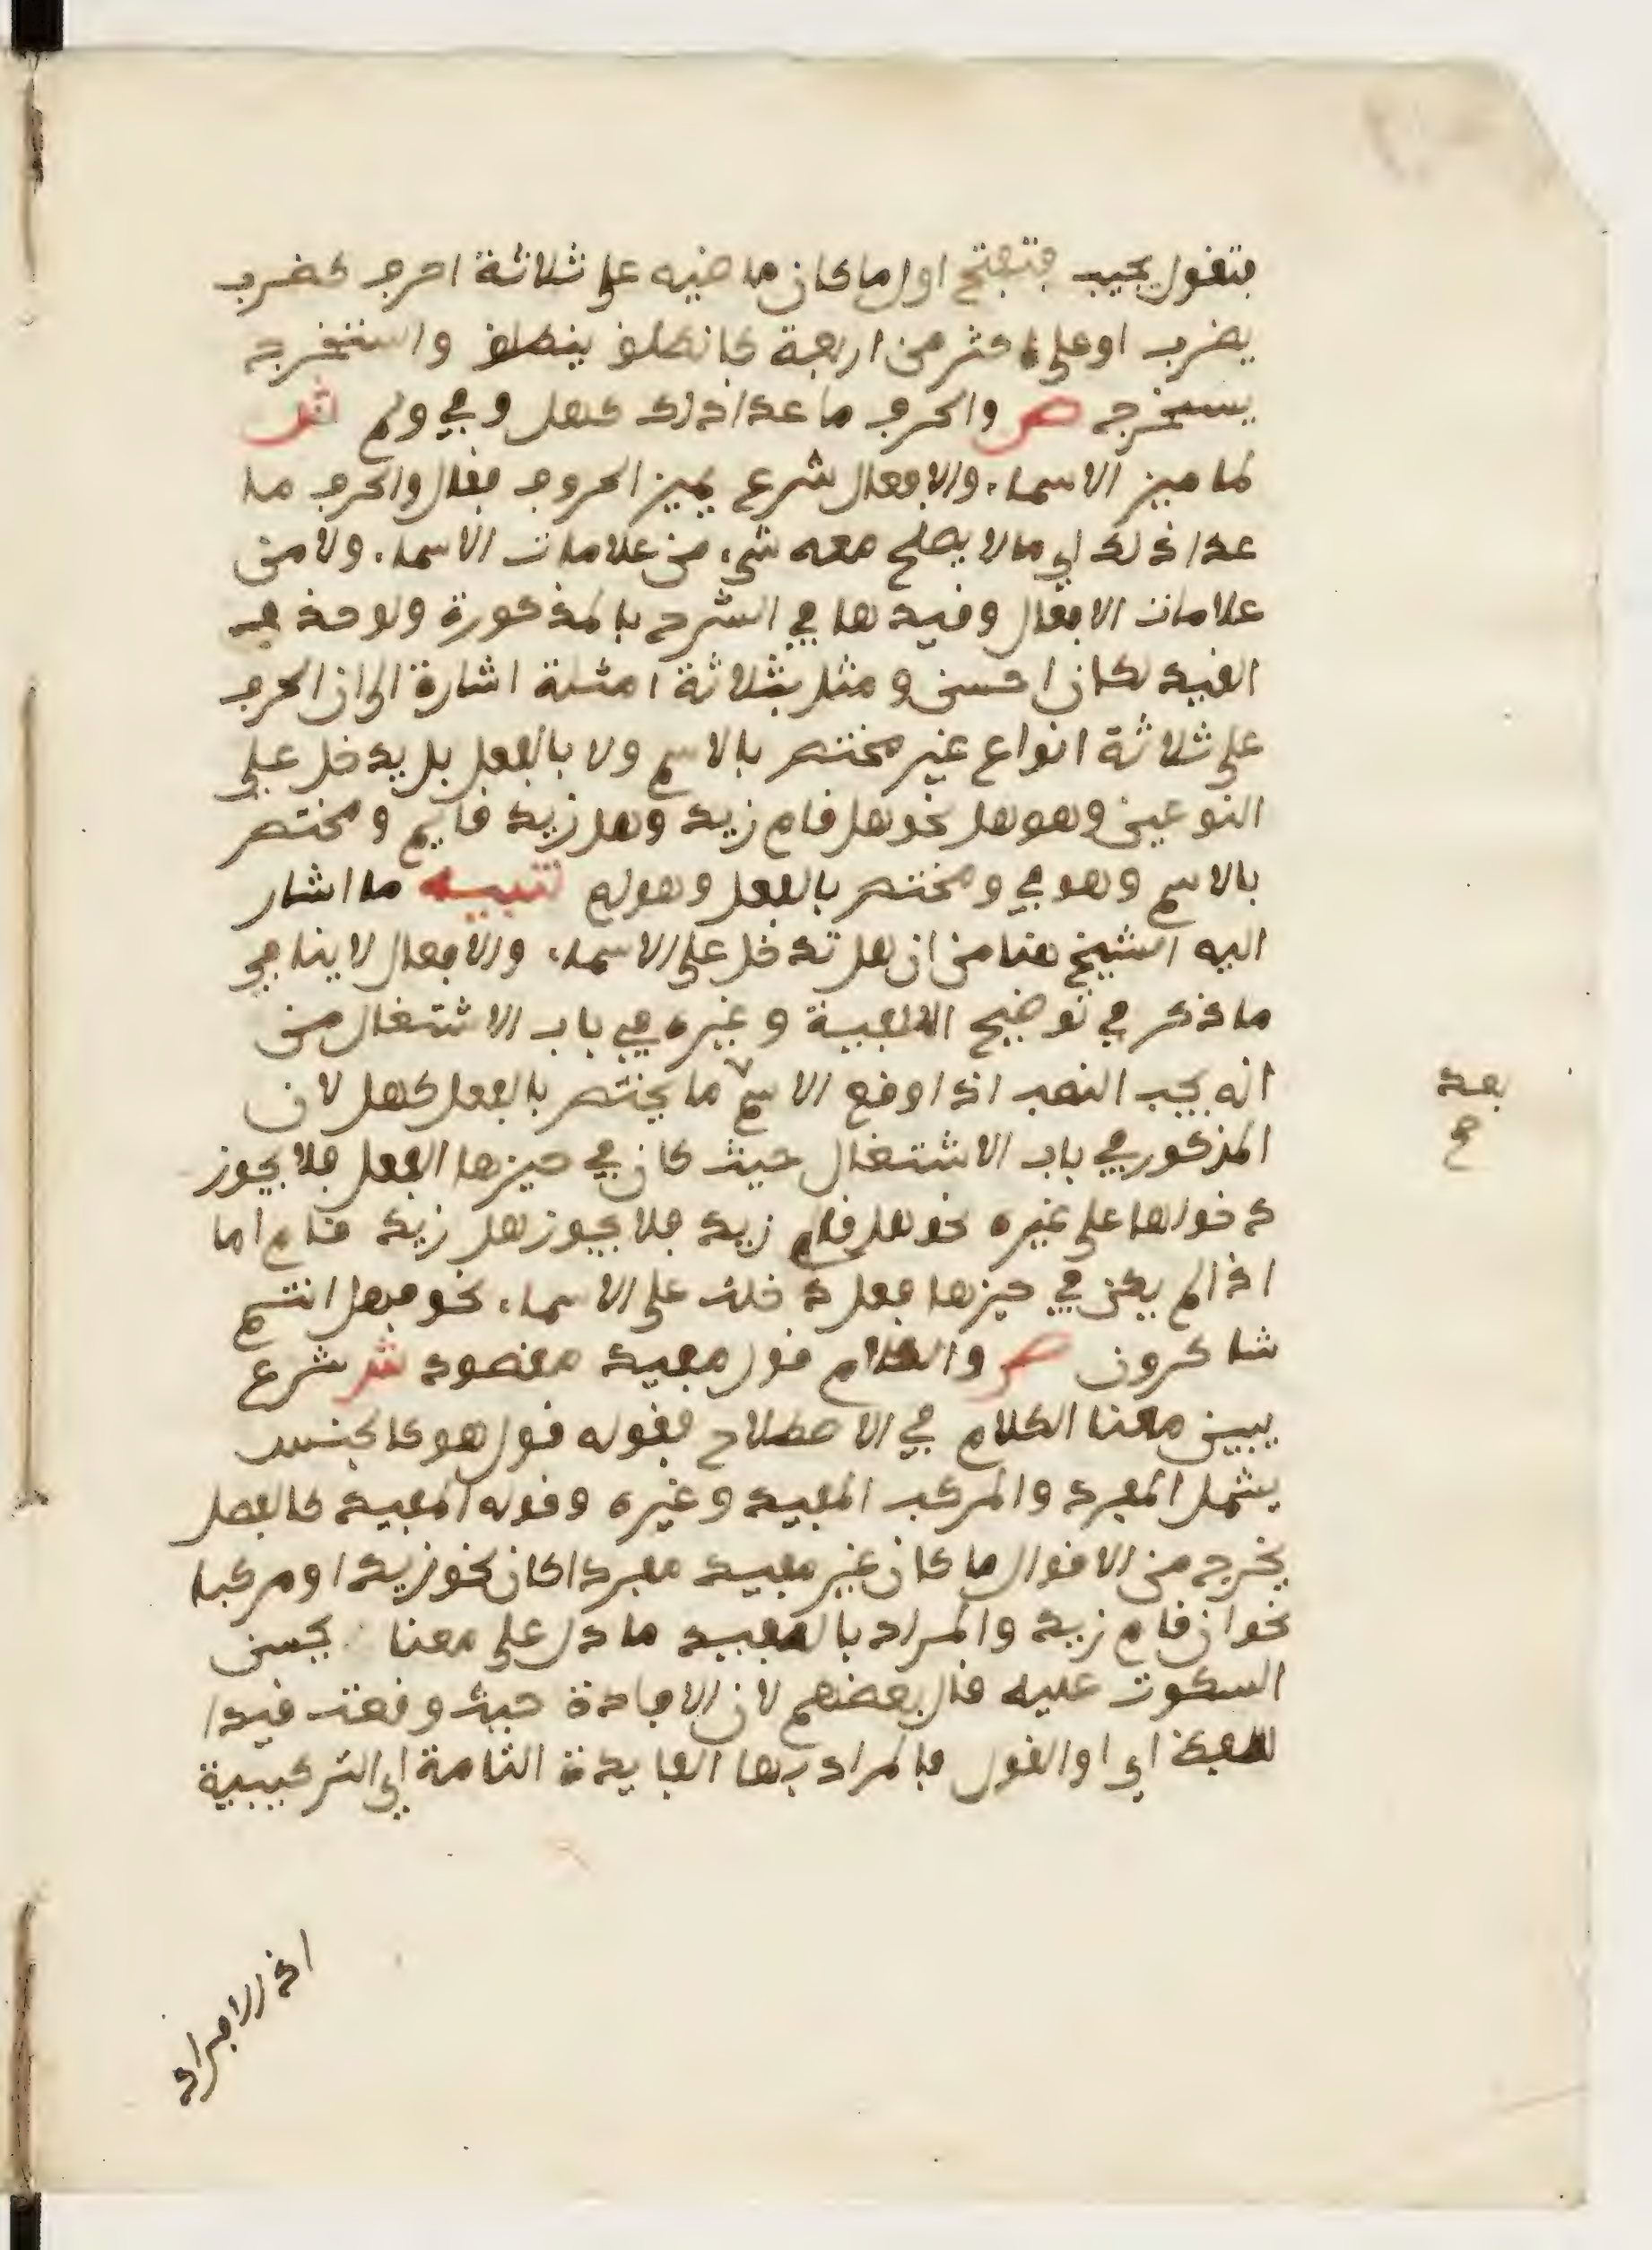 فتقول يجيب فتفتح اول ما كان ماضيه على ثلاثة احرف كضرب
يضرب او على اكثر من اربعة كانطلق ينطلق واستخرج
يستخرج ص والحرف ما عدا ذلك كهل وفي ولم ش
لما ميز الاسماء والافعال شرع يميز الحروف فقال والحرف ما
عدا ذلك اي ما لا يصلح معه شيء من علامات الاسماء ولا من
علامات الافعال وقيدها في الشرح بالمذكورة ولو حذف
القيد لكان احسن ومثل بثلاثة امثلة اشارة الى ان الحرف
على ثلاثة انواع غير مختص بالاسم ولا بالفعل بل يدخل على
النوعين وهو هل نحو هل قام زيد وهل زيد قايم ومختص
بالاسم وهو في ومختص بالفعل وهو لم تنبيه ما اشار
اليه الشيخ هنا من ان هل تدخل على الاسماء والافعال لا ينافي
ما ذكر في توضيح الالفية وغيره في باب الاشتغال من
انه يجب النصب اذا وقع الاسم ما يختص بالفعل كهل لان
المذكور في باب الاشتغال حيث كان في حيزها الفعل فلا يجوز
دخولها على غيره نحو هل قام زيد فلا يجوز هل زيد قام اما
اذا لم يكن في حيزها فعل دخلت على الاسماء نحو فهل انتم
شاكرون ص والكلام قول مفيد مقصود ش شرع
يبين معنا الكلام في الاصطلاح فقوله قول هو كالجنس
يشمل المفرد والمركب المفيد وغيره وقوله المفيد كالفصل
يخرج من الاقوال ما كان غير مفيد مفردا كان نحو زيد او مركبا
نحو ان قام زيد والمراد بالمفيد ما دل على معنا يحسن
السكوت عليه قال بعضهم لان الافادة حيث وقعت قيدا
للفظ اي او القول فالمراد بها الفايدة التامة اي التركيبية
اذ الافراد
بعد
صح